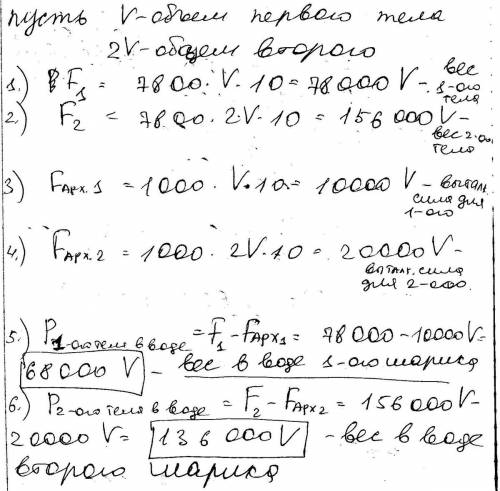 пусть V-объем первого тела
2V-общем второго
1.) F₁ = 7800·V·10 = 78000V- вес 1-ого тела
2.) F₂ = 7800·2V·10 = 156000V- вес 2-ого тела
3) Fарх.1 = 1000·V·10 = 10000V - выталк. сила для 1-ого
4.) Fарх.2 = 1000·2V·10 = 20000V- вытал. сила для 2-ого.
5.) P1-ого тела в воде = F₁ - Fарх1 = 78000 - 10000V=
68000V - вес в воде 1-ого шарика
6.) P2-ого тела в воде = F₂ - Fарх2 = 156000V-
20000V= 136000V - вес в воде
второго шарика